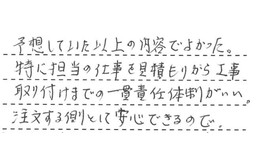 予想していた以上の内容でよかった。
特に担当の仕事を見積もりから工事
取り付けまでの一貫責任体制がいい。
注文する側として安心できるので。